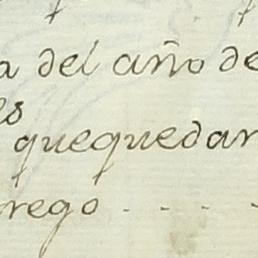 a del año de
es
quequedar
rego - - - -